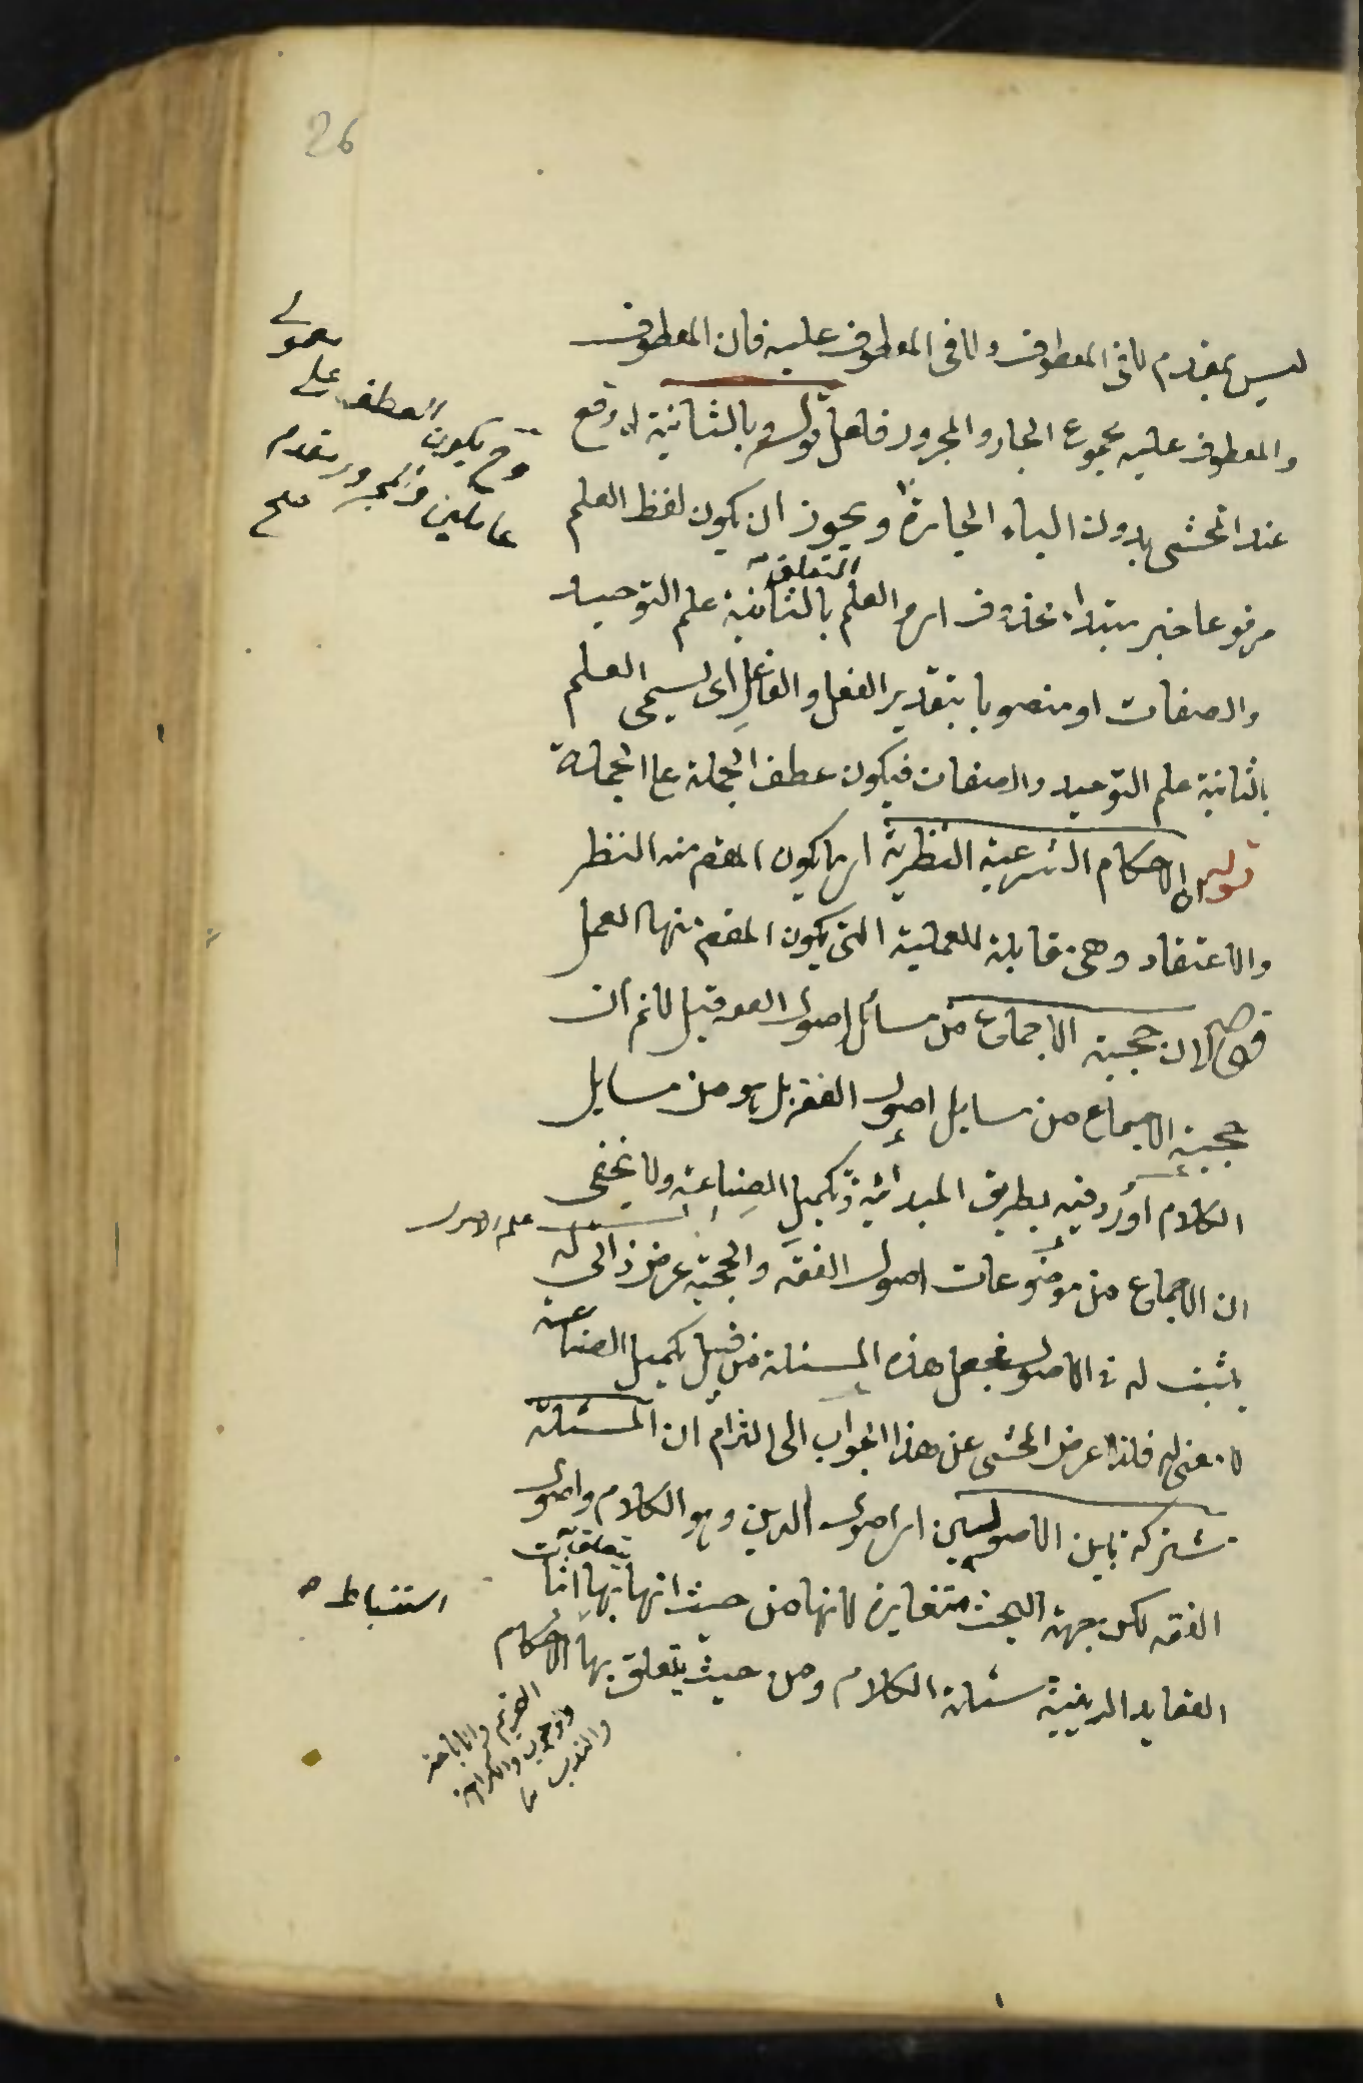 26
ليس بمقدم لا فى المعطوف ولا فى المعطوف عليه فان المعطوف
والمعطوف عليه مجموع الجار والمجرور فلعل قوله وبالثانية وقع
عند المحشى بدون الباء الجارة ويجوز ان يكون لفظ العلم
المتعلق
مرفوعا خبر مبتداء محذوف اى العلم بالثانية علم التوحيد
والصفات او منصوبا بتقدير الفعل والفاعل اى يسمى العلم
بالثانية علم التوحيد والصفات فيكون عطف الجملة على الجملة
قوله ان الاحكام الشرعية النظرية اى ما يكون المقص منه النظر
والاعتقاد وهى مقابلة للعملية التى يكون المقص منها العمل
لان حجية الاجماع من مسائل اصول الفقه قيل لانم ان
حجية الاجماع من مسايل اصول الفقه بل هو من مسايل
الكلام اورد فيه بطريق المبدائية وتكميل الصناعة ولا يخفى
ان الاجماع من موضوعات اصول الفقه والحجية عرض ذاتى له
يثبت له فى الاصول فجعل هذه المسئلة من قبيل تكميل الصناعة
لا معنى له فلذا عرض المحشى عن هذا الجواب الى التزام ان المسئلة
مشتركة بين الاصولين اى اصول الدين وهو الكلام واصول
الفقه لكن جهة البحث متغايرة لانها من حيث انها يتعلق بها اثبات
العقايد الدينية مسئلة الكلام ومن حيث يتعلق بها الاحكام
وح يكون العطف على معمولى
عاملين والمجرور مقدم
صح
استنباط
التحريم والاباحة
والوجوب والكراهة
والندب